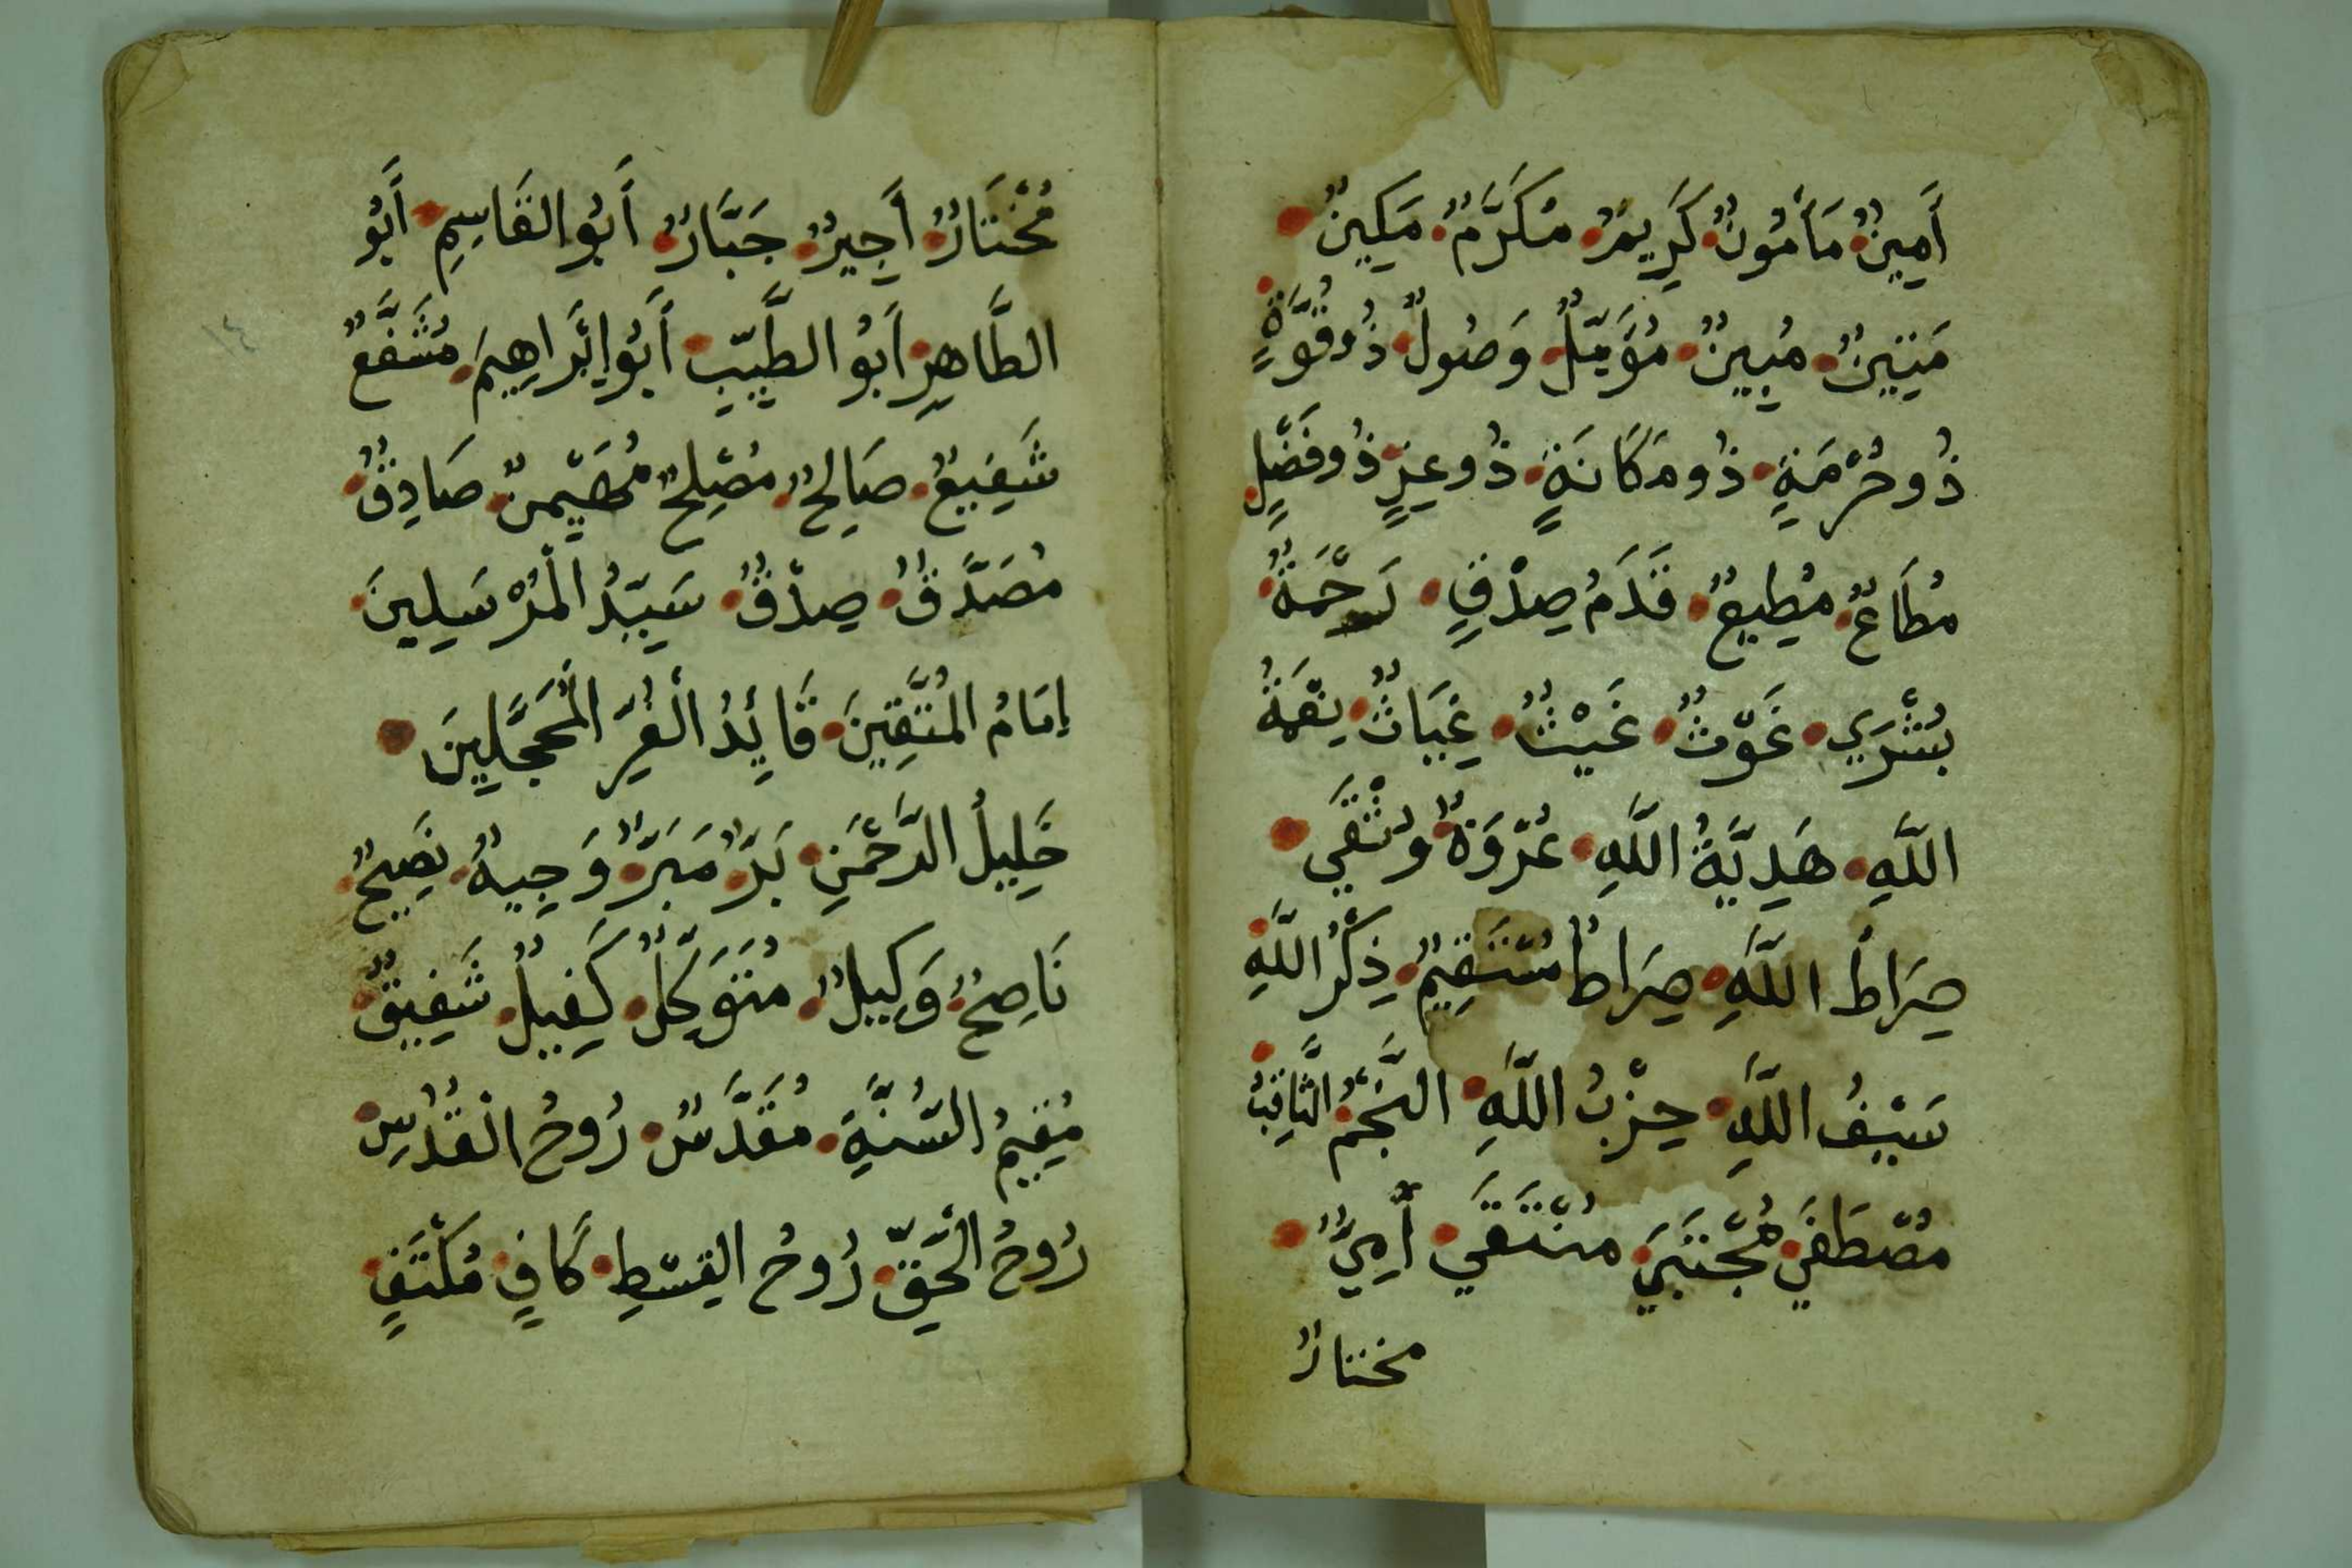 أَمِينٌ مَأْمُونٌ كَرِيمٌ مُكَرَّمٌ مَكِينٌ
مَتِينٌ مُبِينٌ مُؤَمَّلٌ وَصُولٌ ذُو قُوَّةٍ
ذُو حُرْمَةٍ ذُو مَكَانَةٍ ذُو عِزٍّ ذُو فَضْلٍ
مُطَاعٌ مُطِيعٌ قَدَمُ صِدْقٍ رَحْمَةٌ
بُشْرَي غَوْثٌ غَيْثٌ غِيَاثٌ نِعْمَةُ
اللَّهِ هَدِيَّةُ اللَّهِ عُرْوَةٌ وُثْقَي
صِرَاطُ اللَّهِ صِرَاطٌ مُسْتَقِيمٌ ذِكْرُ اللَّهِ
سَيْفُ اللَّهِ حِزْبُ اللَّهِ النَّجْمُ الثَّاقِبُ
مُصْطَفَي مُجْتَبَي مُنْتَقَي أُمِيٌّ
مختارٌ
مُخْتَارٌ أَجِيرٌ جَبَّارٌ أَبُو القَاسِمِ أَبُو
الطَّاهِرِ أَبُو الطَّيِّبِ أَبُو إِبْرَاهِيمَ مُشَفَّعٌ
شَفِيعٌ صَالِحٌ مُصْلِحٌ مُهَيْمِنٌ صَادِقٌ
مُصَدَّقٌ صِدْقٌ سَيِّدُ الْمُرْسَلِينَ
إِمَامُ الْمُتَّقِينَ قَائِدُ الْغُرِّ الْمُحَجَّلِينَ
خَلِيلُ الرَّحْمَنِ بَرٌّ مَبَرٌّ وَجِيهٌ نَصِيحٌ
نَاصِحٌ وَكِيلٌ مُتَوَكِّلٌ كَفِيلٌ شَفِيقٌ
مُقِيمُ السُّنَّةِ مُقَدَّسٌ رُوحُ الْقُدُسِ
رُوحُ الْحَقِّ رُوحُ القِسْطِ كَافٍ مُكْتَفٍ
١٤